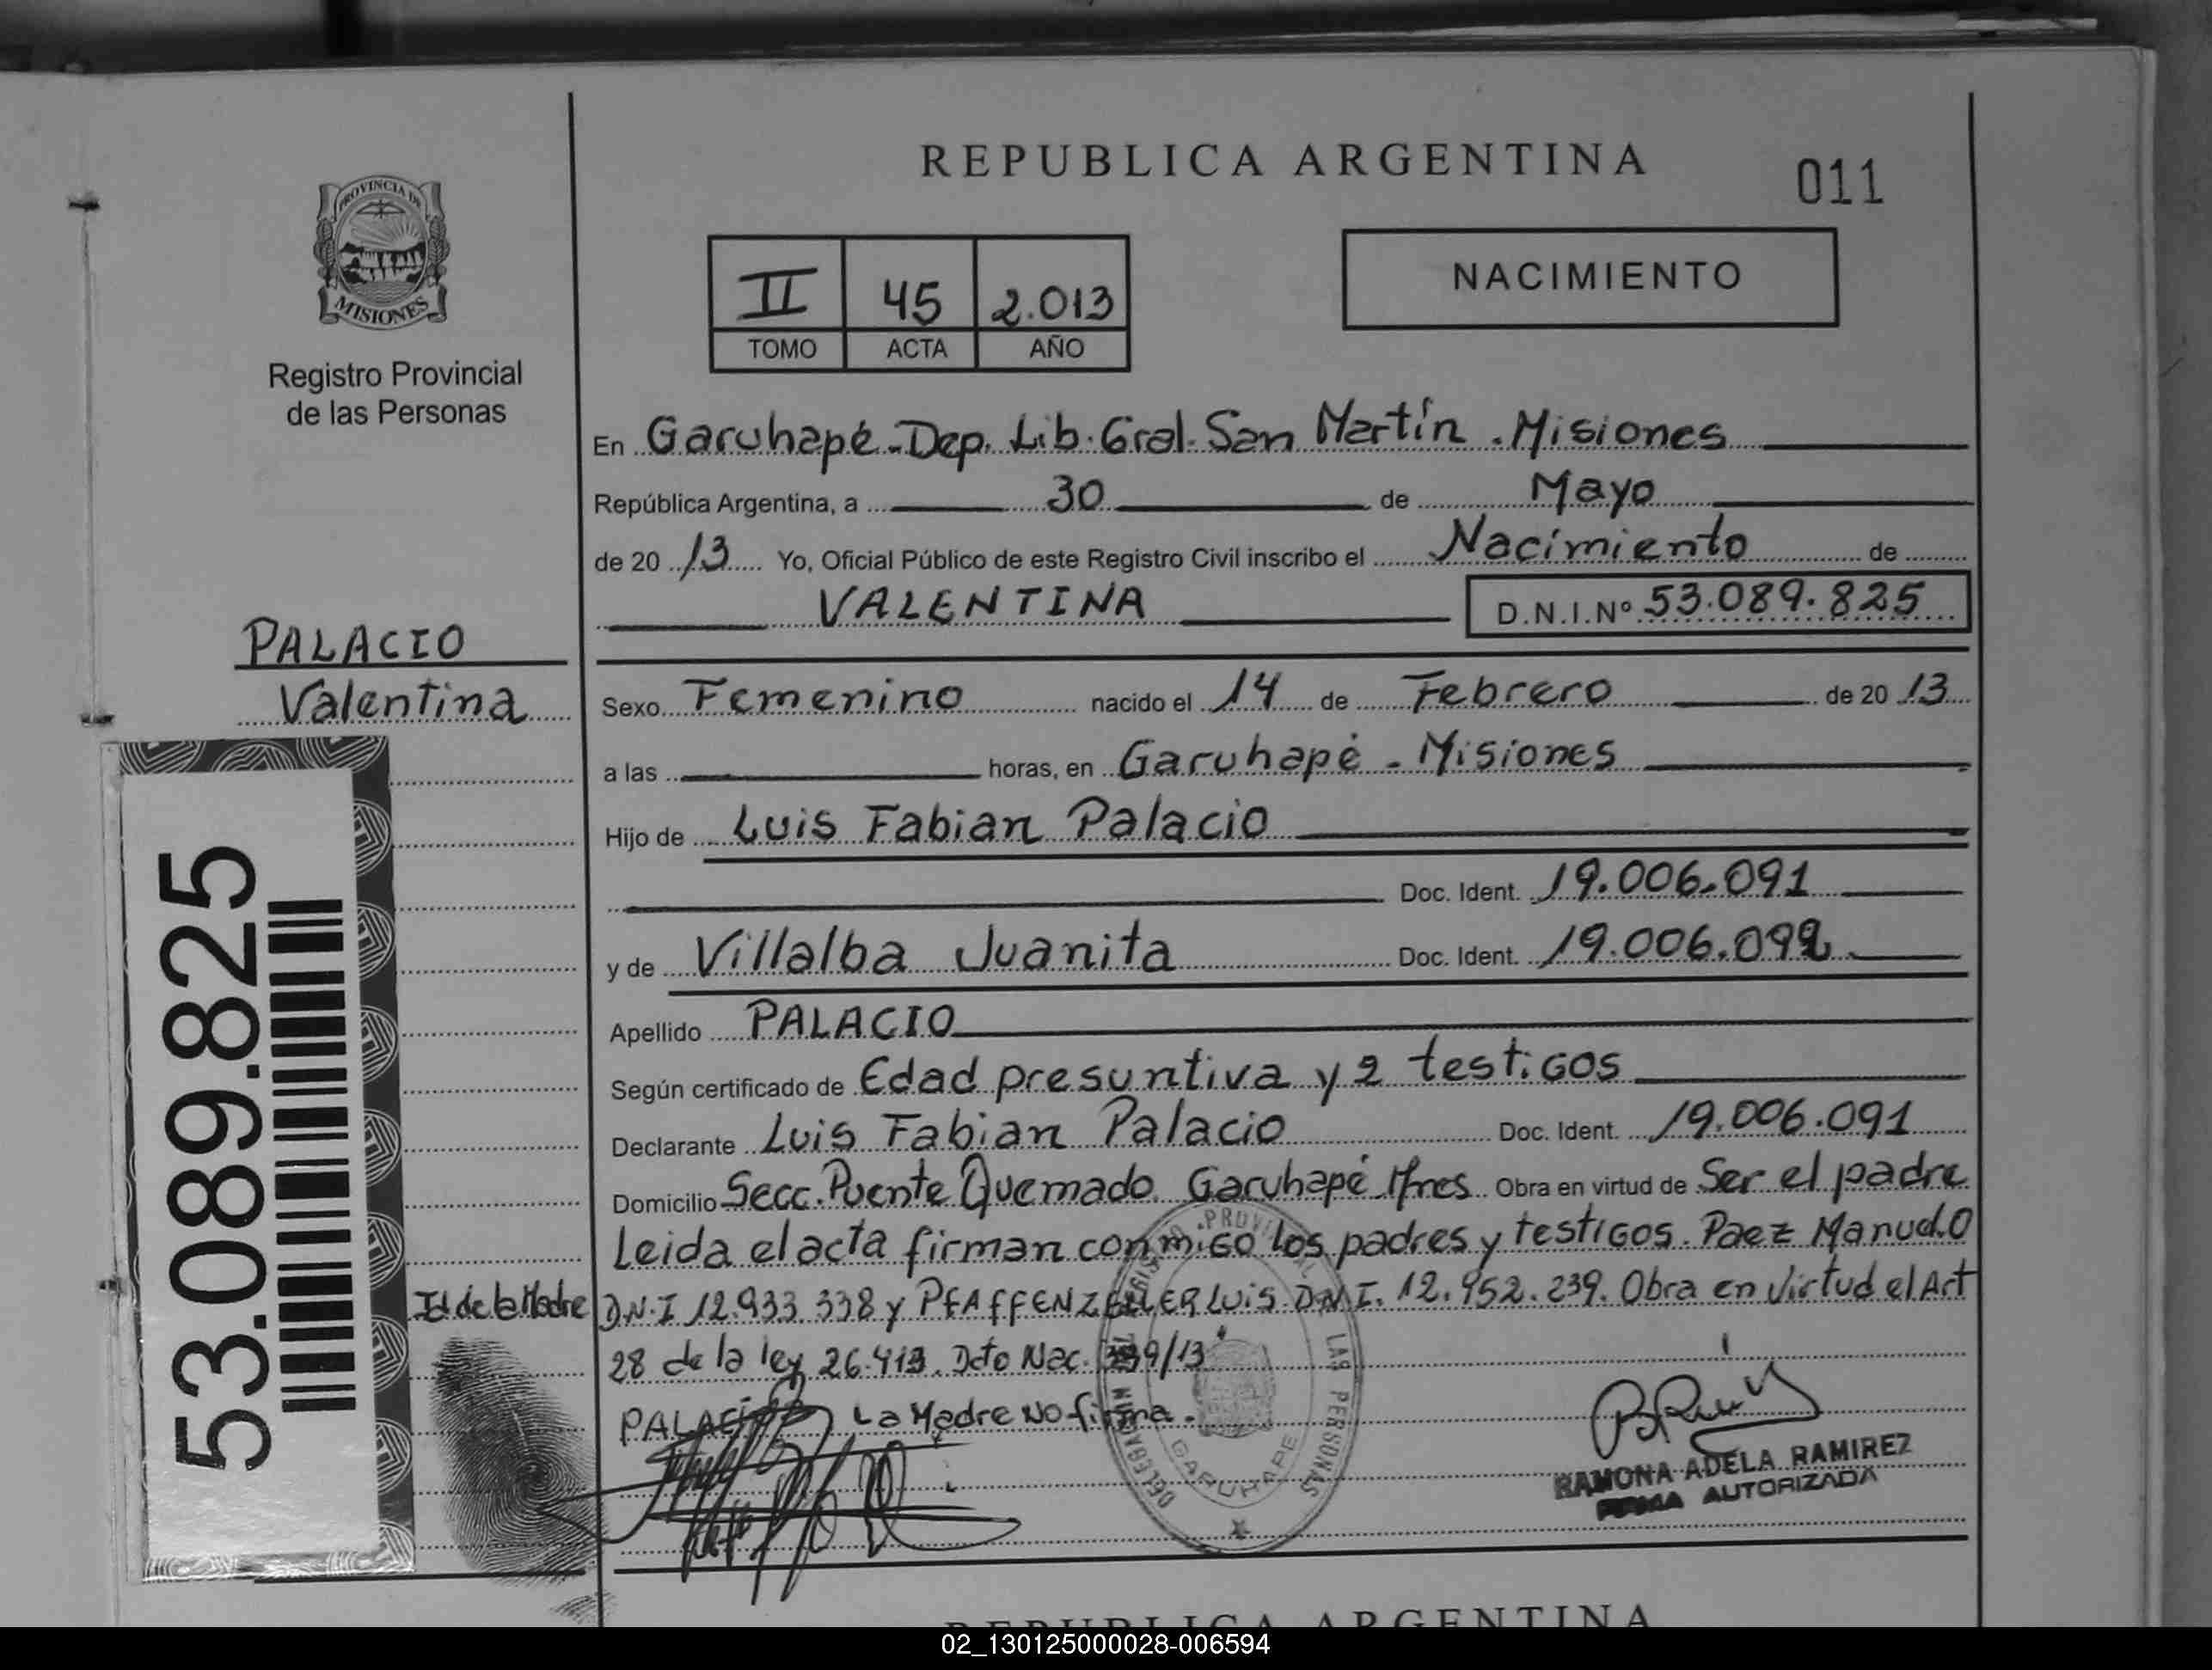 REPUBLICA ARGENTINA
011
PROVINCIA DE
MISIONES
Registro Provincial
de las Personas
II 45 2.013
TOMO ACTA AÑO
NACIMIENTO
En Garuhapé - Dep. Lib. Gral. San Martín . Misiones
República Argentina, a 30 de Mayo
de 20 13 Yo, Oficial Público de este Registro Civil inscribo el Nacimiento de
VALENTINA D.N.I.Nº 53.089.825
PALACIO
Valentina
53.089.825
Sexo Femenino nacido el 14 de Febrero de 20 13
a las horas, en Garuhapé - Misiones
Hijo de Luis Fabian Palacio
Doc. Ident. 19.006.091
y de Villalba Juanita Doc. Ident. 19.006.092
Apellido PALACIO
Según certificado de Edad presuntiva y 2 testigos
Declarante Luis Fabian Palacio Doc. Ident. 19.006.091
Domicilio Secc. Puente Quemado Garuhapé Mnes Obra en virtud de Ser el padre
Leida el acta firman conmigo los padres y testigos. Paez Manuel.O
Id de la Madre
D.N.I 12.933.338 y PFAFFENZELLER Luis D.N.I. 12.952.239. Obra en virtud el Art
28 de la ley 26.413. Dcto Nac. 339/13
PALACIO La Madre No firma.
REGISTRO PROVINCIAL DE LAS PERSONAS
GARUHAPE
RAMONA ADELA RAMIREZ
FIRMA AUTORIZADA
REPUBLICA ARGENTINA
02_130125000028-006594